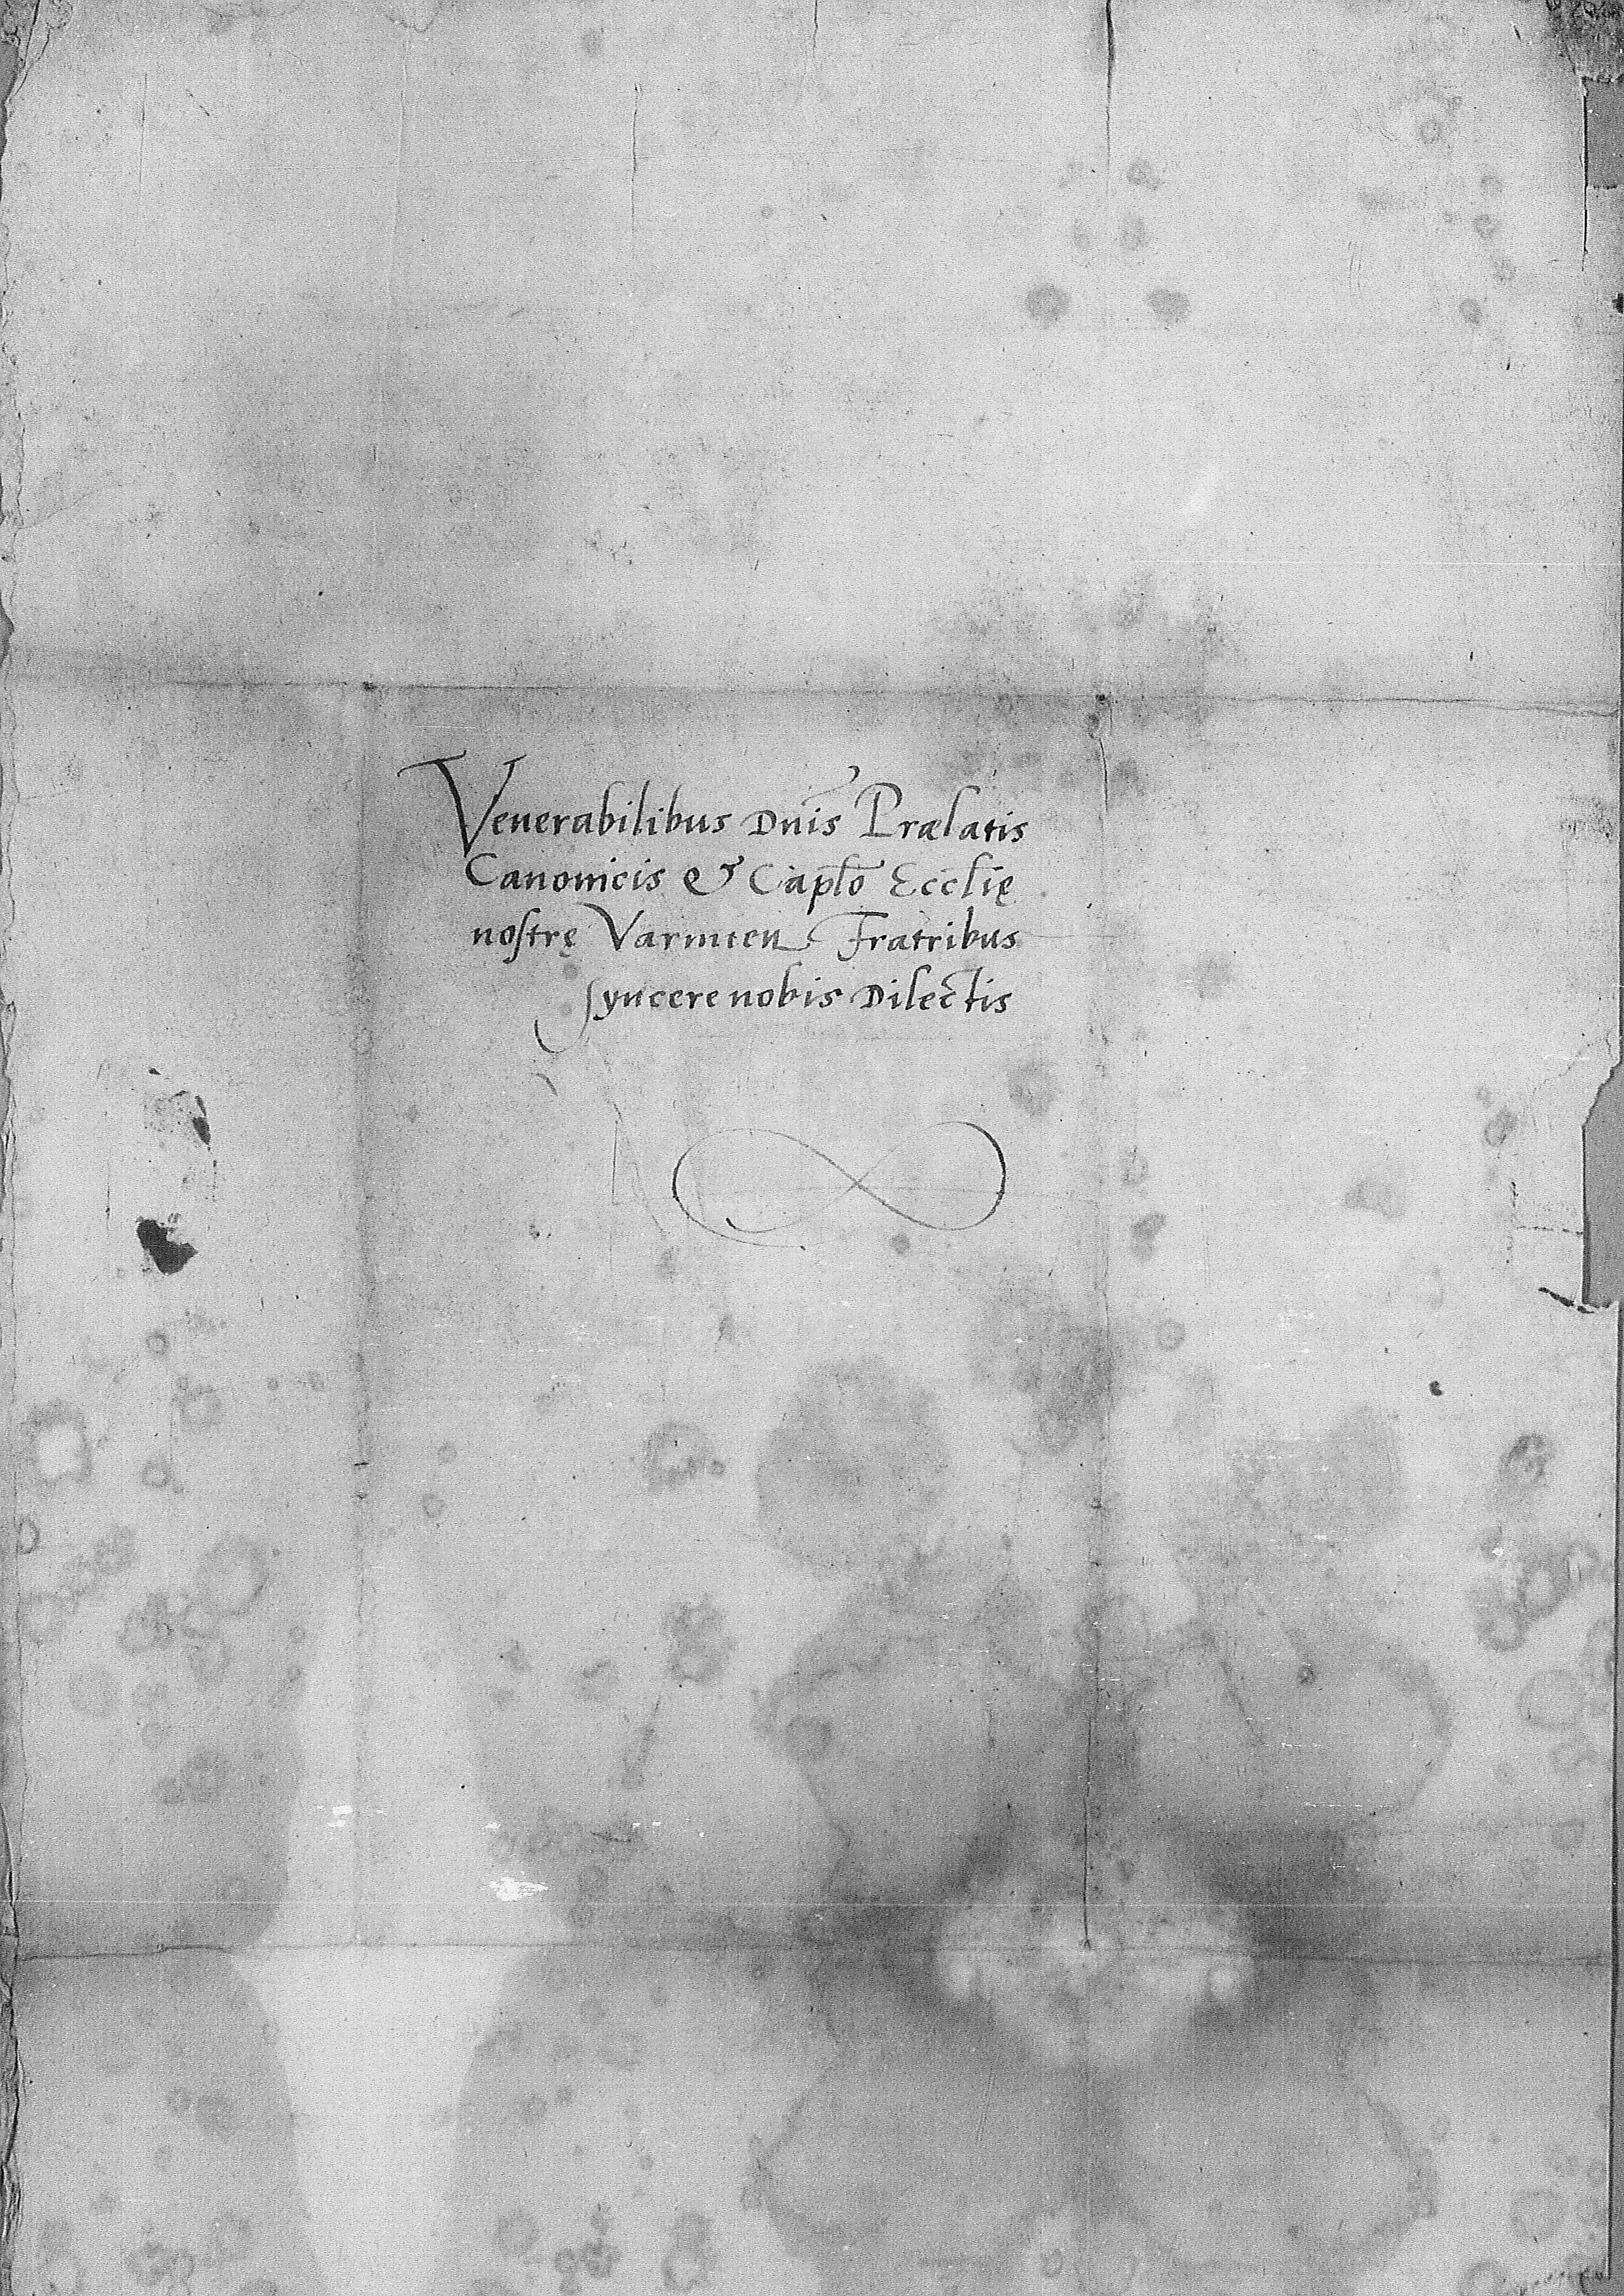 Venerabilibus Dnis Prælatis
Canonicis & Caplo Ecclię
noſtrę Varmien. Fratribus
ſyncere nobis Dilectis